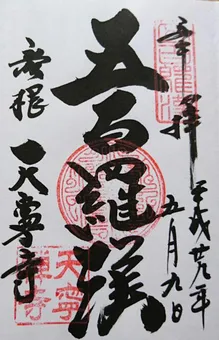 奉拝
平成廿九年
五月九日
五百羅漢
彦根
天寧寺
天寧
禅寺